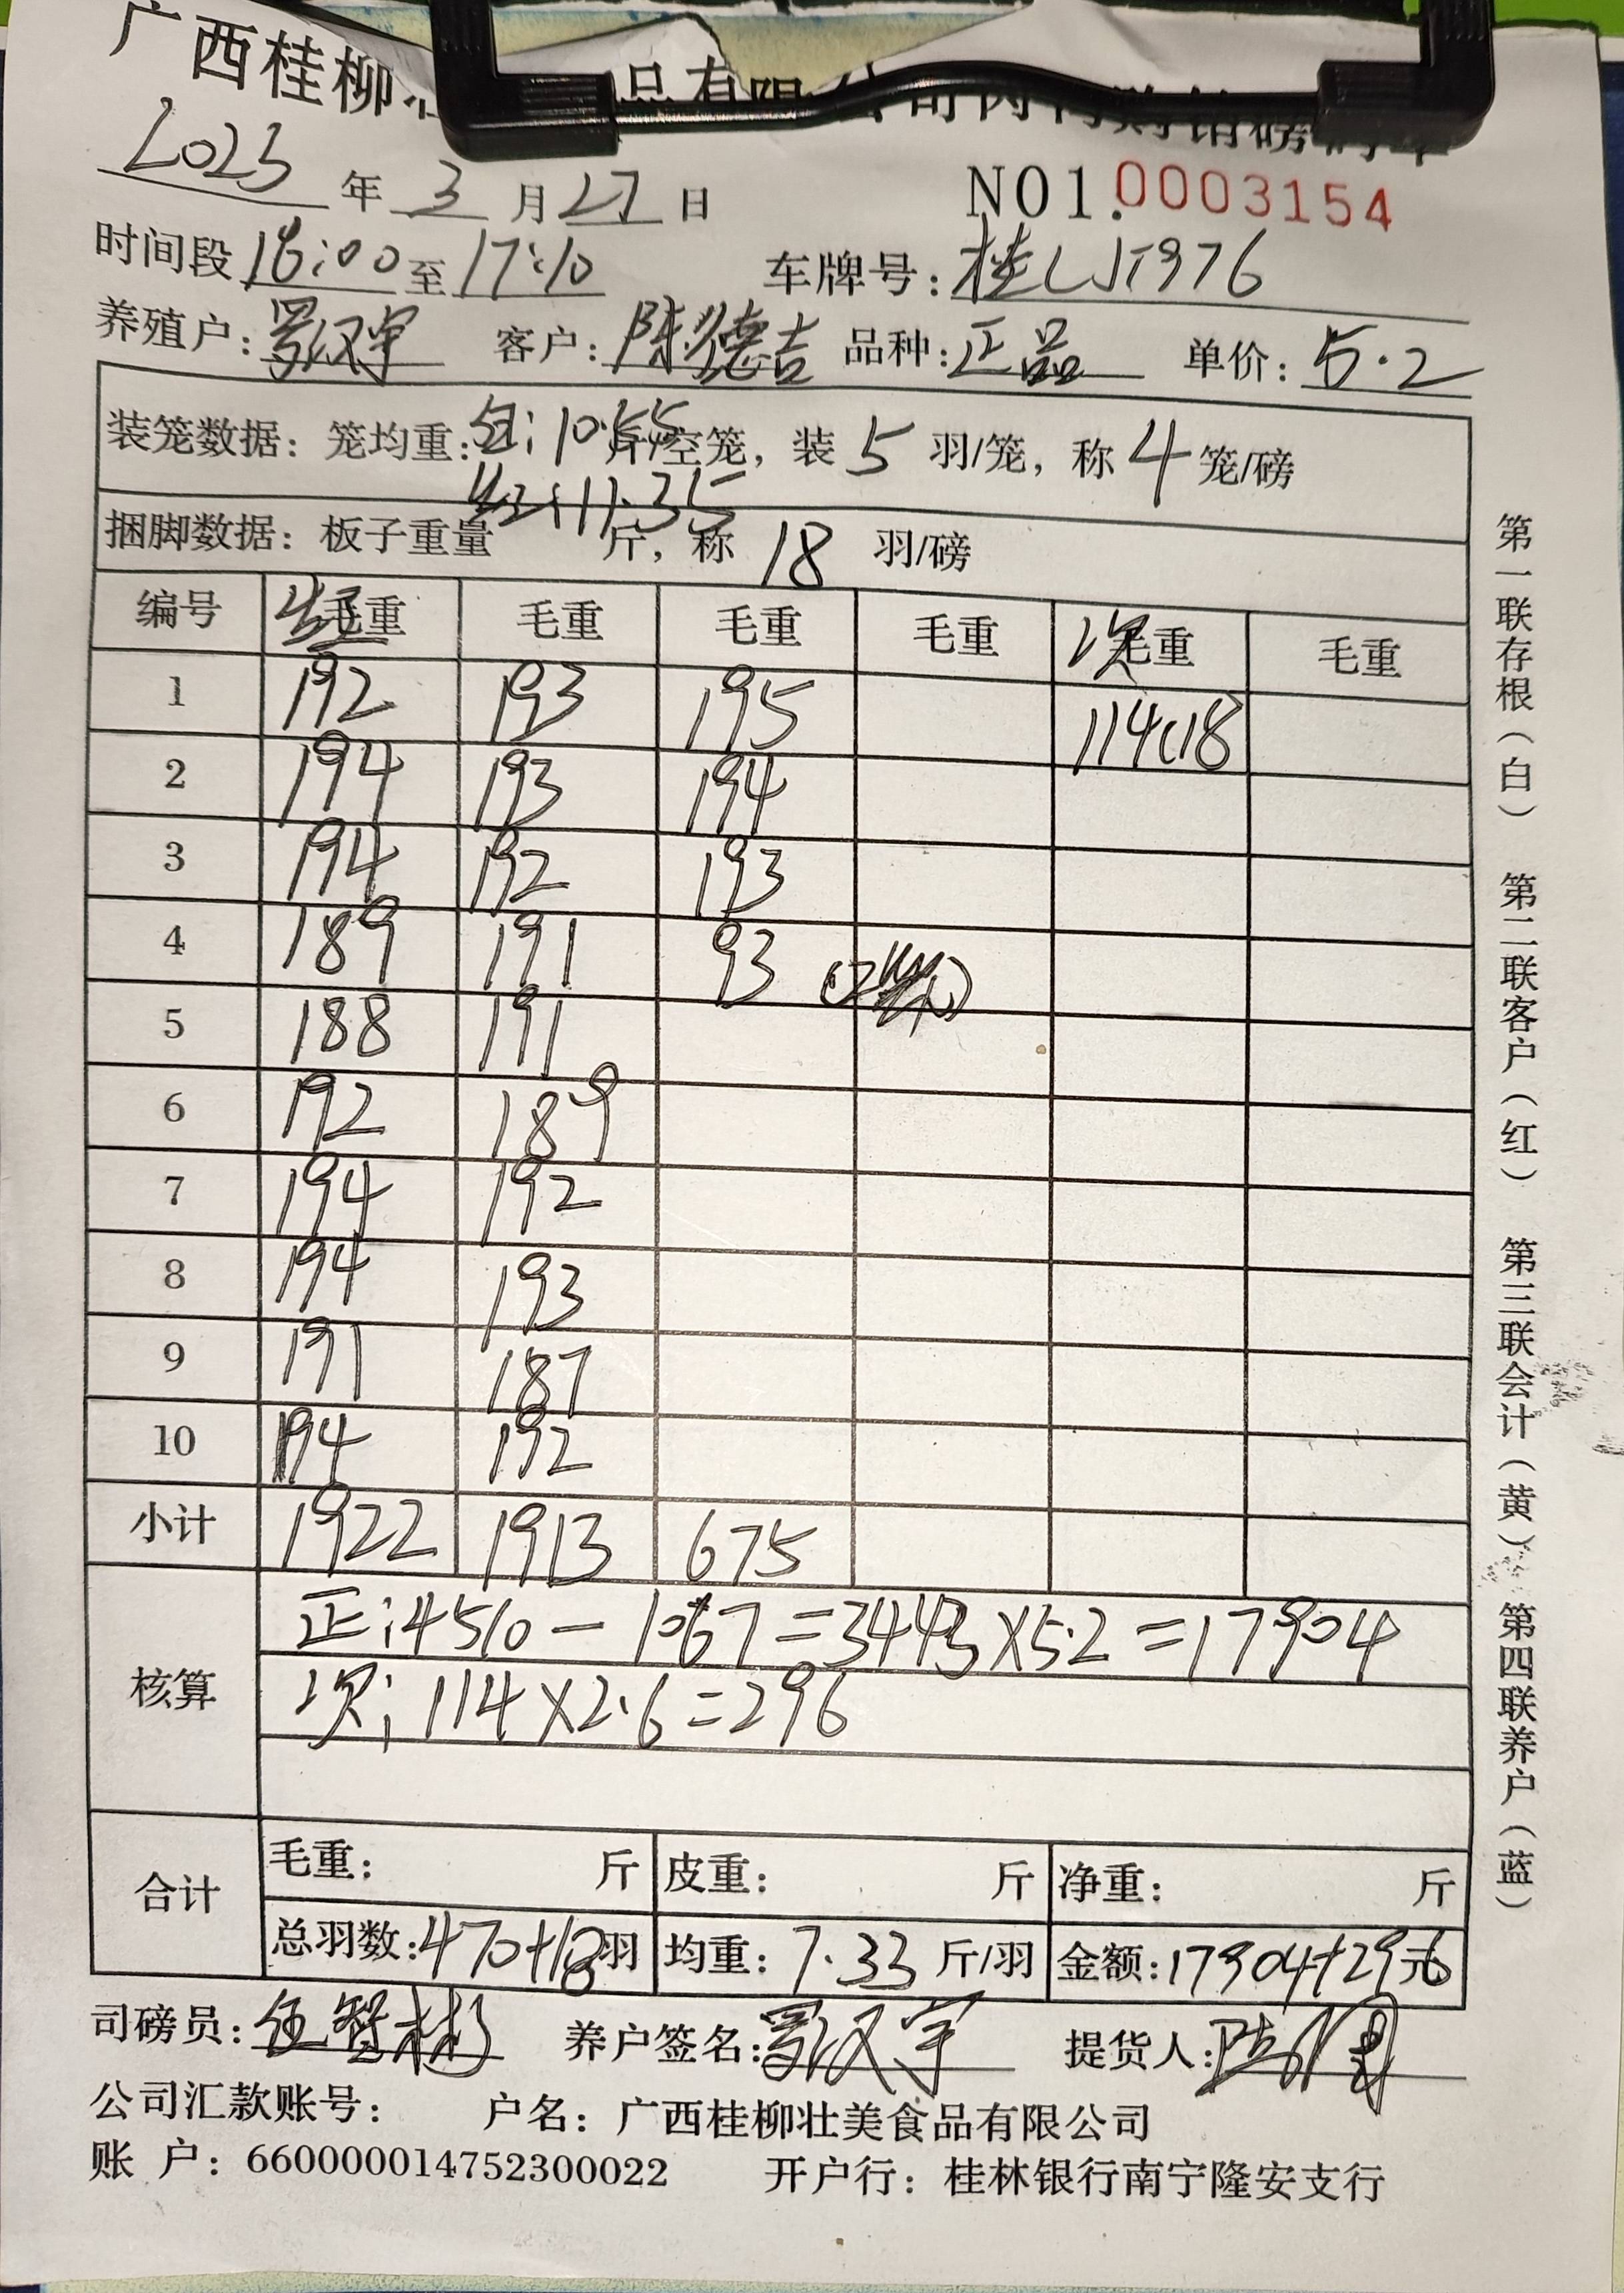 广西桂柳 品有限公司肉鸭购销磅码单
2025年3月27日 NO1.0003154
时间段16:00至17:10 车牌号:桂LJ5976
养殖户:罗汉宇 客户:陈德吉 品种:正品 单价:5.2
装笼数据:笼均重:白:10.55斤/空笼,装5羽/笼,称4笼/磅
红:11.35
捆脚数据:板子重量 斤,称18羽/磅
编号 毛重 毛重 毛重 毛重 次毛重 毛重
1 192 193 195 114(18
2 194 193 194
3 194 192 193
4 189 191 93 (2笼)
5 188 191
6 192 189
7 194 192
8 194 193
9 191 187
10 194 192
小计 1922 1913 675
核算 正:4510-1067=3443×5.2=17904
次:114×2.6=296
合计 毛重: 斤 皮重: 斤 净重: 斤
总羽数:470+18羽 均重:7.33斤/羽 金额:17904+296元
司磅员:伍智彬 养户签名:罗汉宇 提货人:
公司汇款账号: 户名:广西桂柳壮美食品有限公司
账 户:660000014752300022 开户行:桂林银行南宁隆安支行
第一联存根(白) 第二联客户(红) 第三联会计(黄) 第四联养户(蓝)